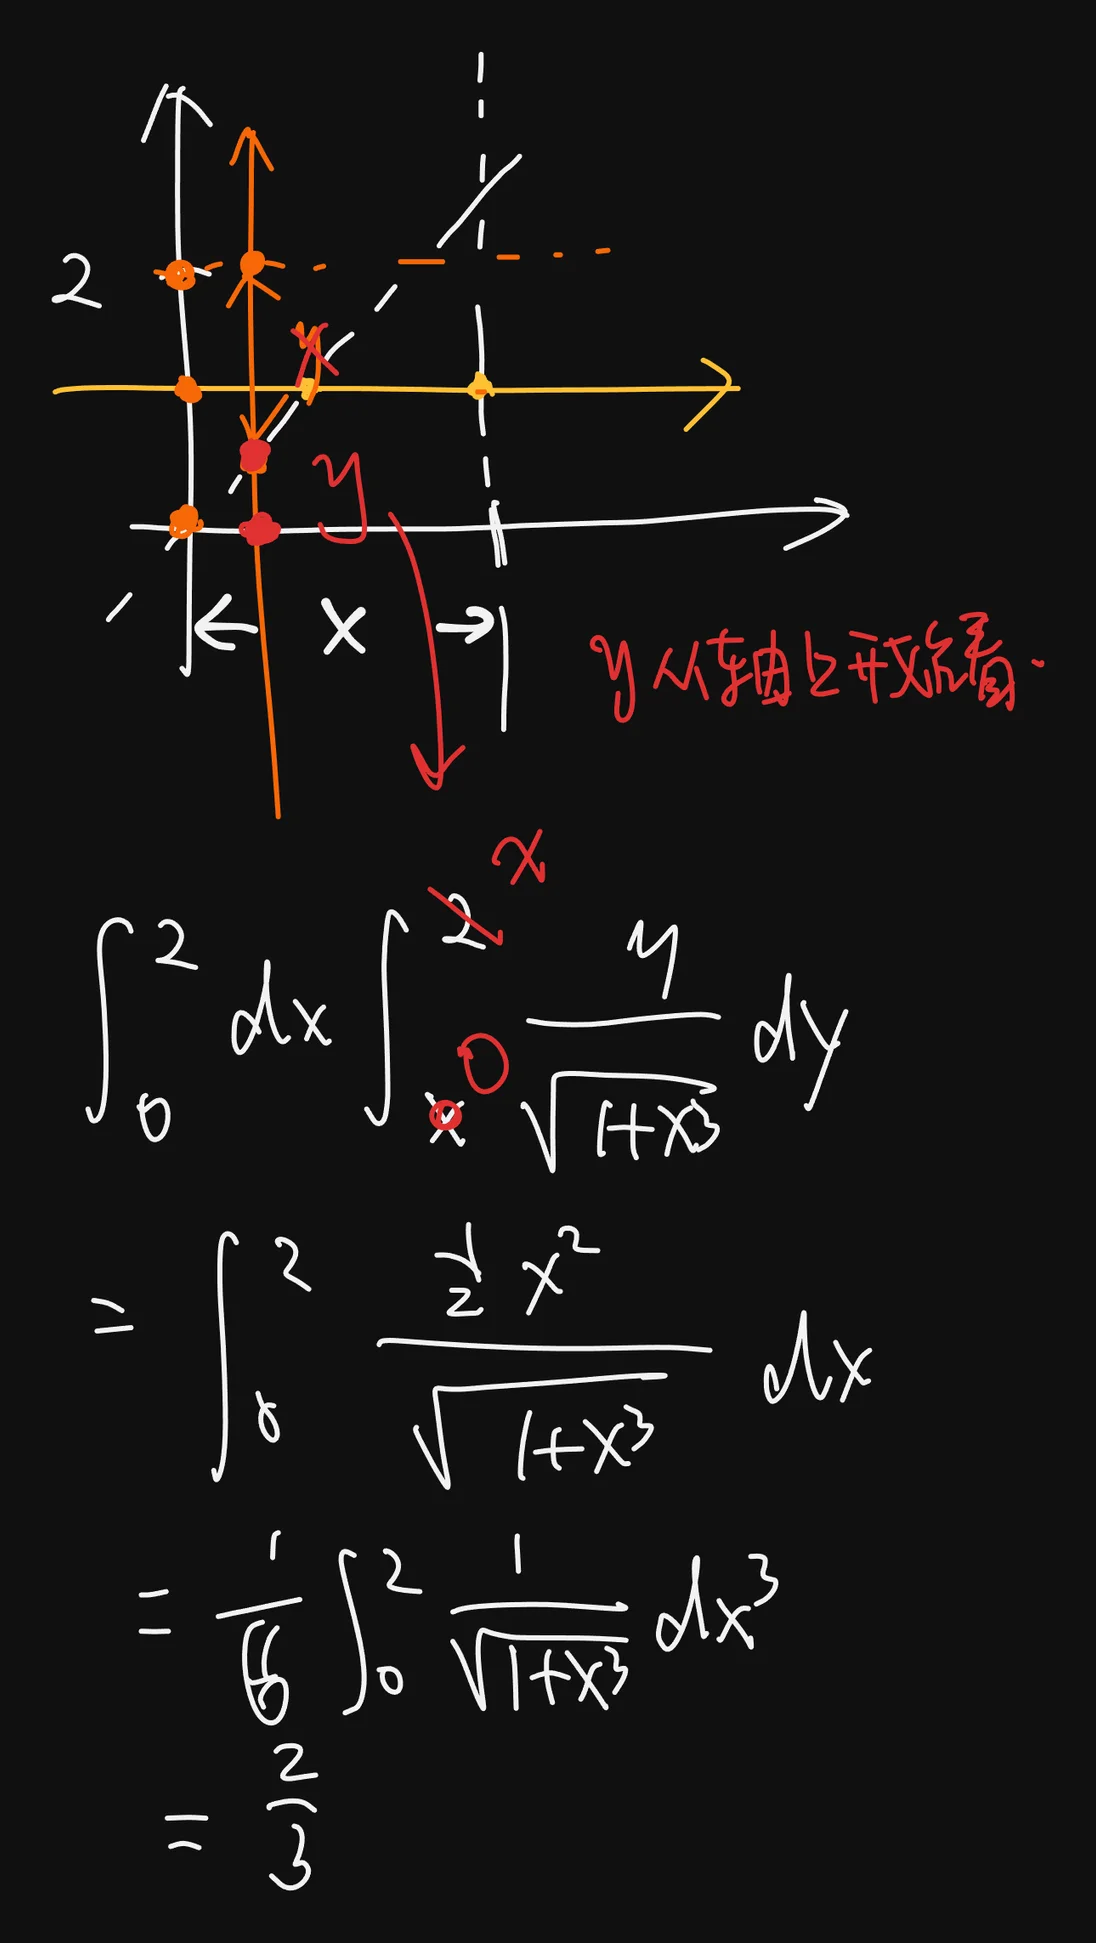 2
y
y
x
y从轴上开始看.
x
∫₀² dx ∫ₓ² 0 y/√(1+x³) dy
= ∫₀² ½x²/√(1+x³) dx
= 1/6 ∫₀² 1/√(1+x³) dx³
= 2/3